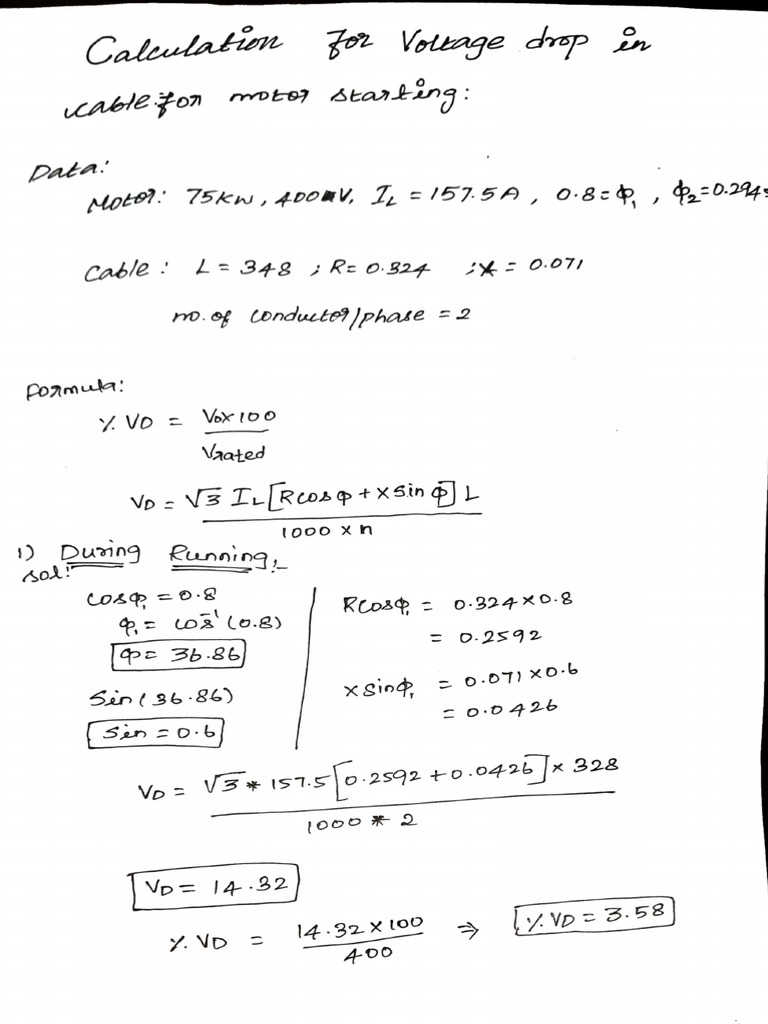 Calculation for Voltage drop in
cable for motor starting:
Data:
Motor: 75KW, 400V, IL = 157.5A, 0.8 = ϕ1, ϕ2 = 0.294
Cable: L = 348 ; R = 0.324 ; X = 0.071
no. of conductor/phase = 2
Formula:
% VD = VD × 100 / Vrated
VD = √3 IL [R cos ϕ + X sin ϕ] L / 1000 × n
1) During Running:-
Sol:
cos ϕ1 = 0.8
ϕ1 = cos⁻¹ (0.8)
ϕ = 36.86
Sin (36.86)
Sin = 0.6
R cos ϕ1 = 0.324 × 0.8
= 0.2592
X sin ϕ1 = 0.071 × 0.6
= 0.0426
VD = √3 * 157.5 [0.2592 + 0.0426] × 328 / 1000 * 2
VD = 14.32
% VD = 14.32 × 100 / 400 ⇒ % VD = 3.58